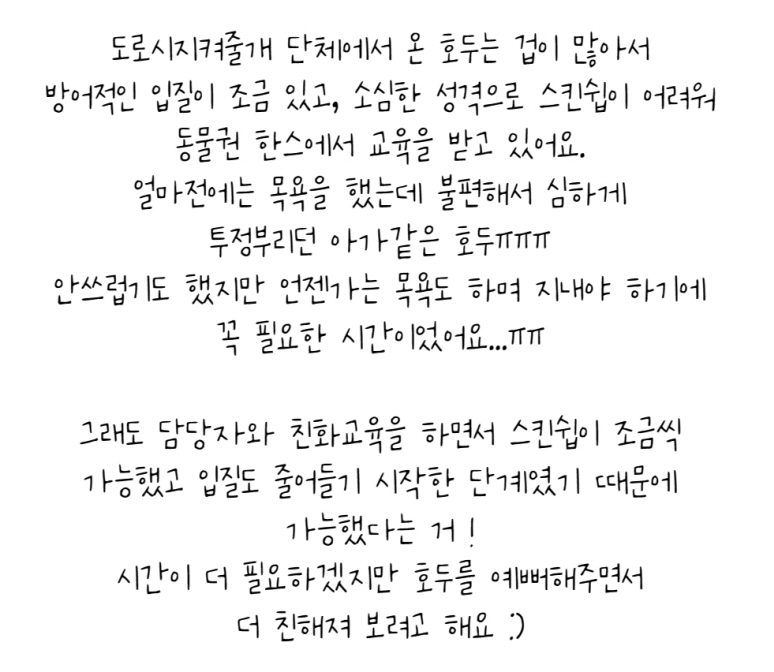 도로시지켜줄개 단체에서 온 호두는 겁이 많아서
방어적인 입질이 조금 있고, 소심한 성격으로 스킨쉽이 어려워
동물권 한스에서 교육을 받고 있어요.
얼마전에는 목욕을 했는데 불편해서 심하게
투정부리던 아가같은 호두ㅠㅠㅠ
안쓰럽기도 했지만 언젠가는 목욕도 하며 지내야 하기에
꼭 필요한 시간이었어요...ㅠㅠ
그래도 담당자와 친화교육을 하면서 스킨쉽이 조금씩
가능했고 입질도 줄어들기 시작한 단계였기 때문에
가능했다는 거 !
시간이 더 필요하겠지만 호두를 예뻐해주면서
더 친해져 보려고 해요 :)